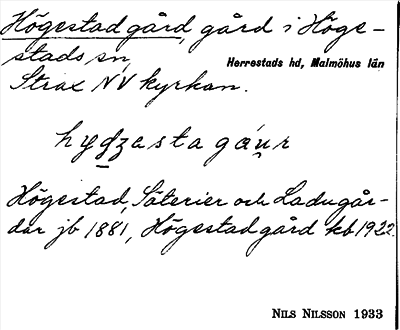 Högestad gård, gård i Höge-
stads sn, Herrestads hd, Malmöhus län
Strax NV kyrkan.
hyd̠z̠asta gáu̯r
Högestad, Säterier och Ladugår-
dar jb 1881, Högestad gård kb 1922.
NILS NILSSON 1933